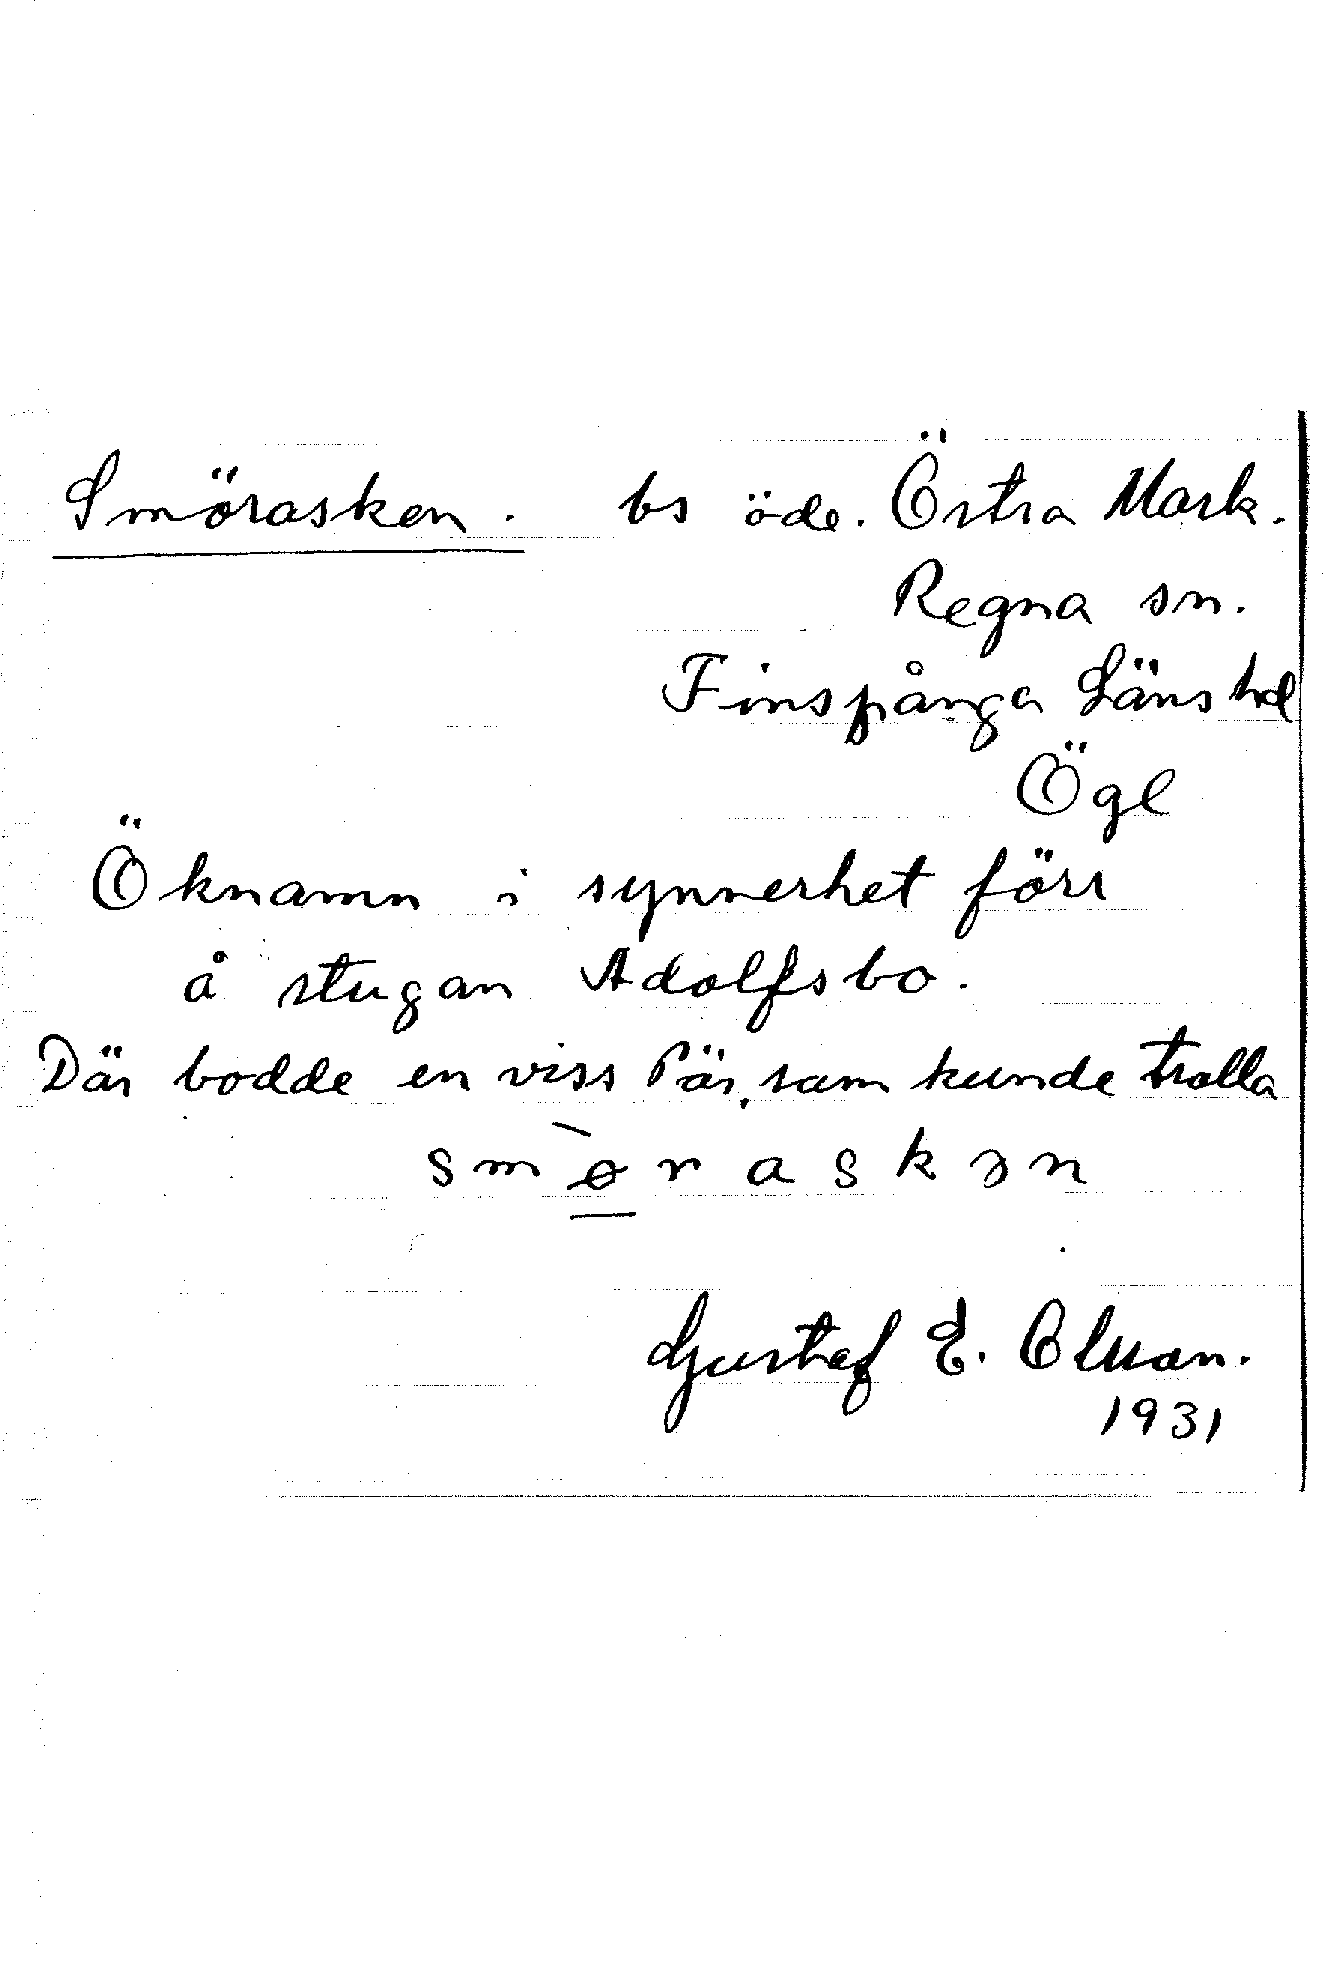 Smörasken. bs öde. Östra Mark.
Regna sn.
Finspånga Läns hd
Ögl
Öknamn i synnerhet förr
å stugan Adolfsbo.
Där bodde en viss Pär, som kunde trolla
smø̀raskən
Gustaf E.
1931